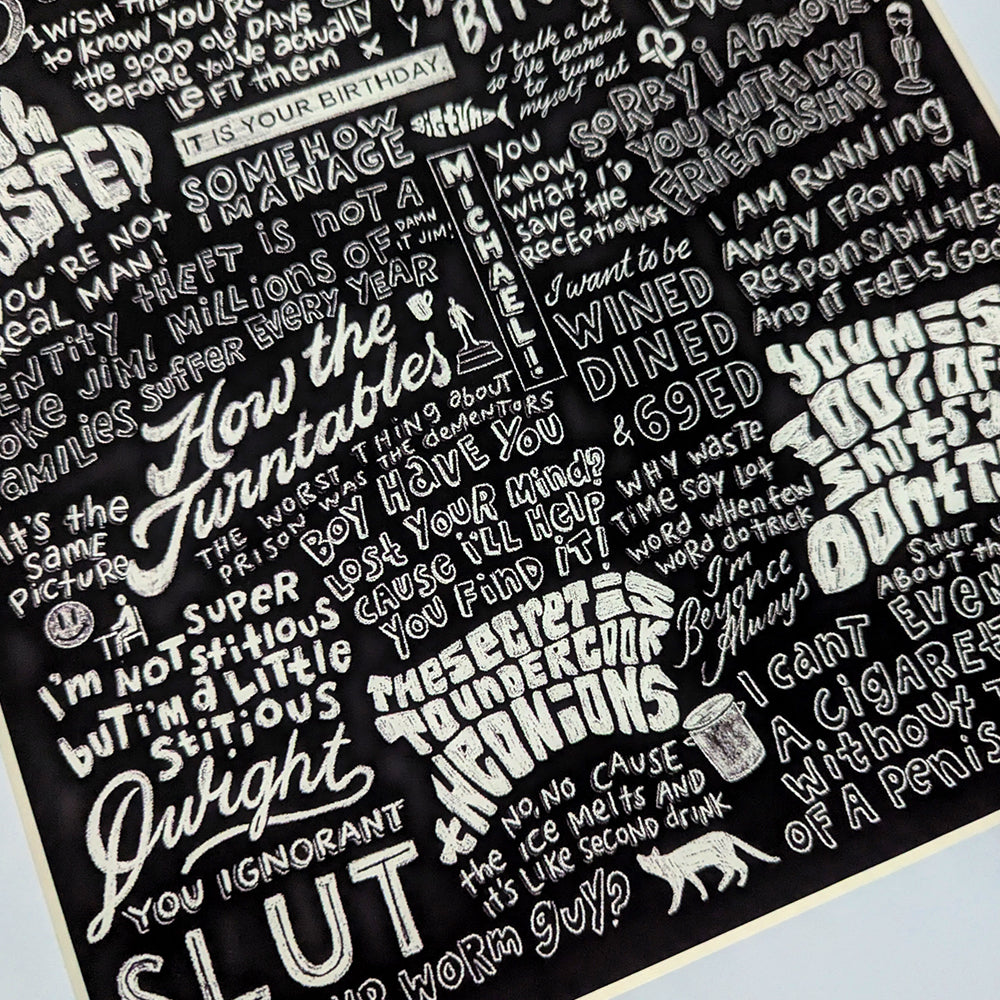 I WISH THE
to know you're
the good old DAYS
BEFORE you've actually
LEFT them
BIT
I talk a lot
so I've learned
to tune
myself out
LOVE
SORRY i ANNOYE
YOU WITH MY
FRIENDSHIP
IT IS YOUR BIRTHDAY.
SOMEHOW
I MANAGE
BIG TUNA
MICHAEL!
YOU
KNOW
WHAT? I'D
save the
RECEPTIONIST
I AM RUNNing
AWAY FROM MY
RESPONSiBiLiTIES
AND IT FEELS Goo
AM
USTED
YOU'RE NOT
REAL MAN!
tHEFT iS noT A
DAMN
IT JIM!
ENTiTY
OKE JiM! MiLLiONS OF
AMiLiES SUFFER EVERY YEAR
How the
Turntables
I want to be
WINED
DINED
& 69ED
YOU MiSS
100% OF
SHOTS Y
DONT T
THE WORST THING about
PRISON WAS THE DEMENTORS
BOY HAVE YOU
LOST YOUR MIND?
CAUSE i'LL HELP
YOU FIND iT!
WHY WASTE
TiME SAY LOT
WORD WHEN FEW
WORD do tRICK
It's the
SAME
PictuRE
I'm
Beyonce
Always
SHUT
ABOUT th
I'm NOT SUPER
stitious
buT i'm a LiTtle
StiTiOUS
THE SECRET iS
TO UNDERCOOK
tHE ONiONS
I canT EVEN
A CiGARET
WithoUt
OF A PENIS
Dwight
YOU IGNORANT
SLUT
NO, NO CAUSE
the ICE MELTS AND
it's LiKE SECOND dRINK
UP WORM guy?